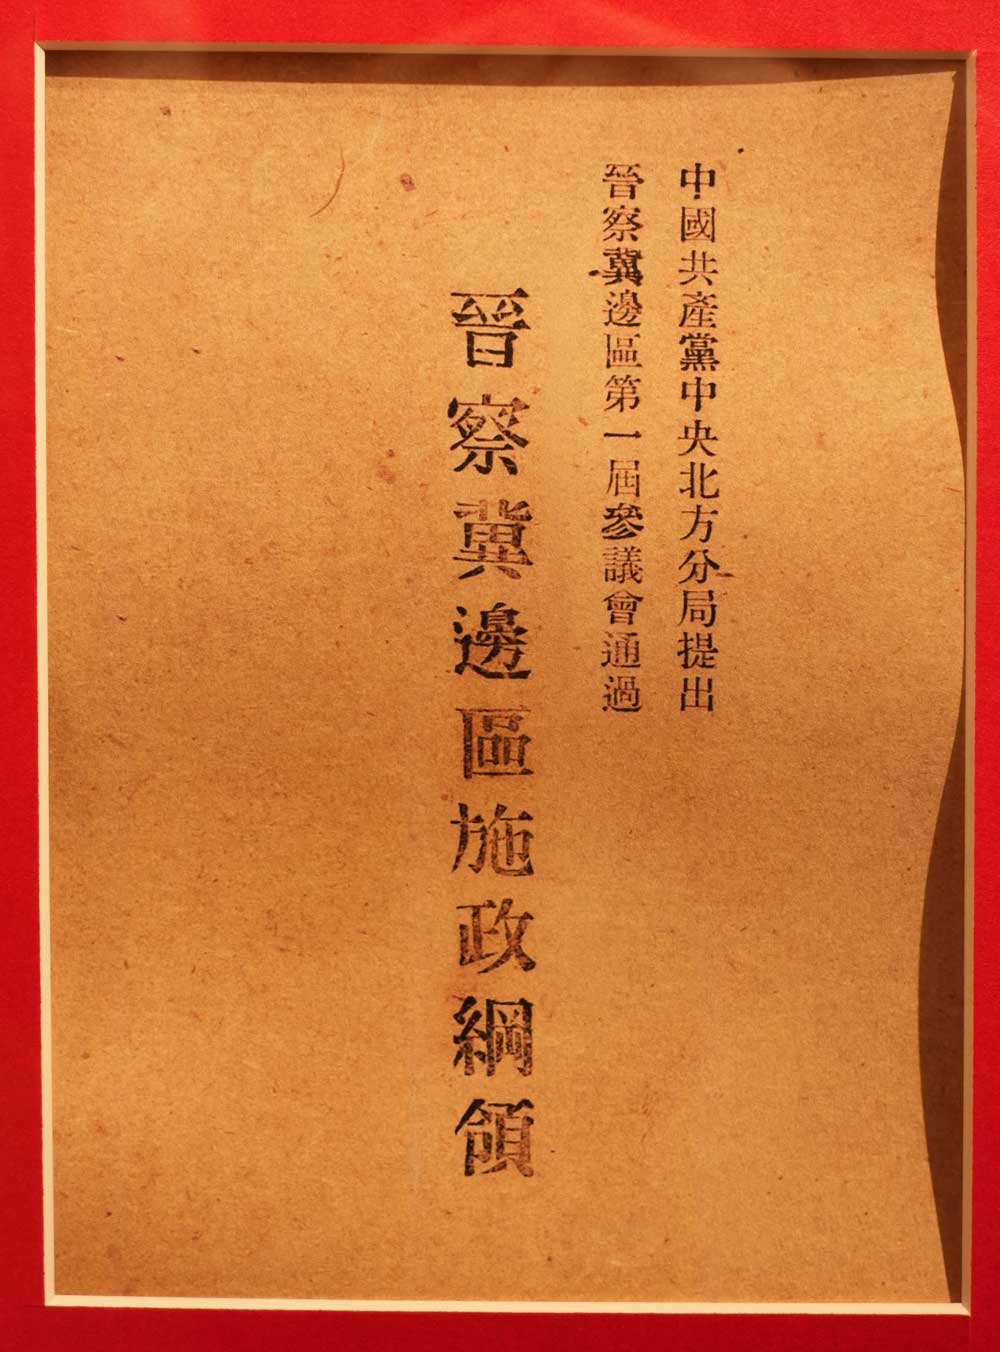 中國共產黨中央北方分局提出
晉察冀邊區第一屆參議會通過
晉察冀邊區施政綱領